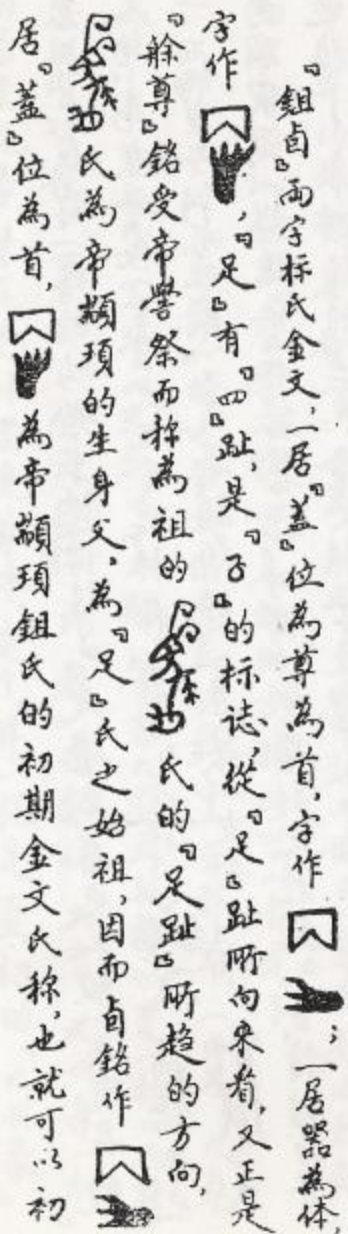 『鉏卣』兩字标氏金文，一居『盖』位為尊為首，字作；一居器為体，
字作，『足』有『四』趾，是『子』的标誌，從『足』趾所向来看，又正是
『䠶尊』銘受帝嚳祭而称為祖的氏的『足趾』所趋的方向，
氏為帝顓頊的生身父，為『足』氏之始祖，因而卣銘作
居『蓋』位為首，為帝顓頊鉏氏的初期金文氏称，也就可以初